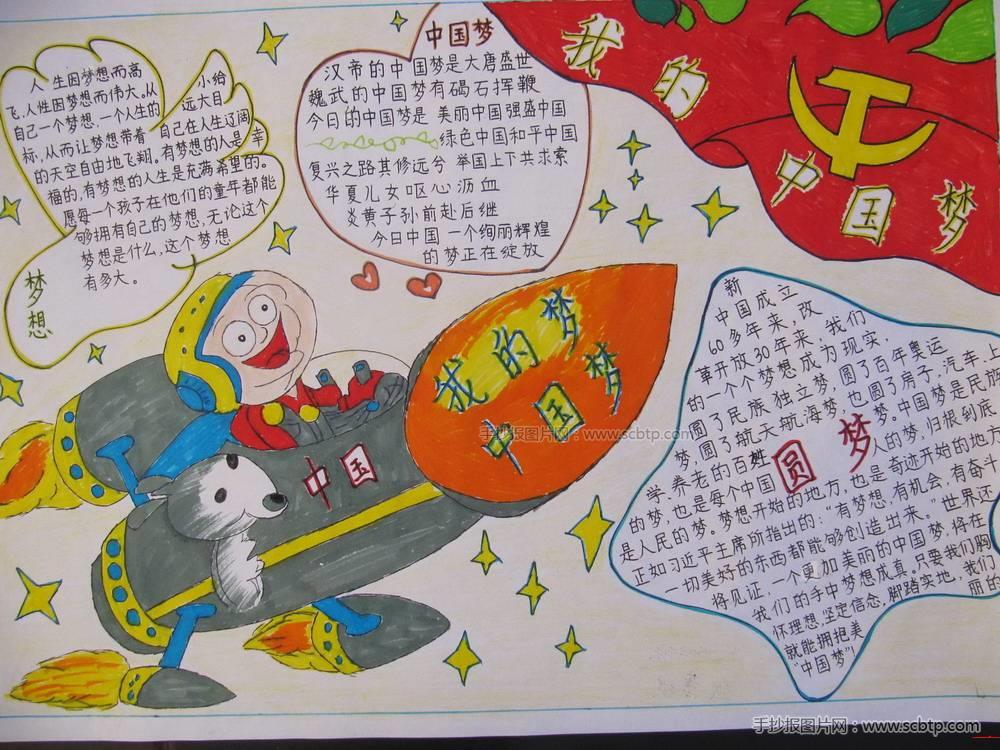 人生因梦想而高
飞,人性因梦想而伟大。从小给
自己一个梦想,一个人生的远大目
标,从而让梦想带着自己在人生辽阔
的天空自由地飞翔。有梦想的人是幸
福的,有梦想的人生是充满希望的。
愿每一个孩子在他们的童年都能
够拥有自己的梦想,无论这个
梦想是什么,这个梦想
有多大。
梦想
中国梦
汉帝的中国梦是大唐盛世
魏武的中国梦有碣石挥鞭
今日的中国梦是 美丽中国强盛中国
绿色中国和平中国
复兴之路其修远兮 举国上下共求索
华夏儿女呕心沥血
炎黄子孙前赴后继
今日中国 一个绚丽辉煌
的梦正在绽放
我的
中国梦
我的梦
中国梦
中国
手抄报图片网:www.scbtp.com
新
中国成立
60多年来,改
革开放30年来,我们
的一个个梦想成为现实,
圆了民族独立梦,圆了百年奥运
梦,圆了航天航海梦,也圆了房子,汽车上
学、养老的百姓梦。中国梦是民族
的梦,也是每个中国人的梦,归根到底
是人民的梦。梦想开始的地方,也是奇迹开始的地方
正如习近平主席所指出的:"有梦想,有机会,有奋斗
一切美好的东西都能够创造出来。"世界还
将见证,一个更加美丽的中国梦,将在
我们的手中梦想成真。只要我们胸
怀理想,坚定信念,脚踏实地,我们
就能拥抱美丽的
"中国梦"!
圆梦
手抄报图片网:www.scbtp.com